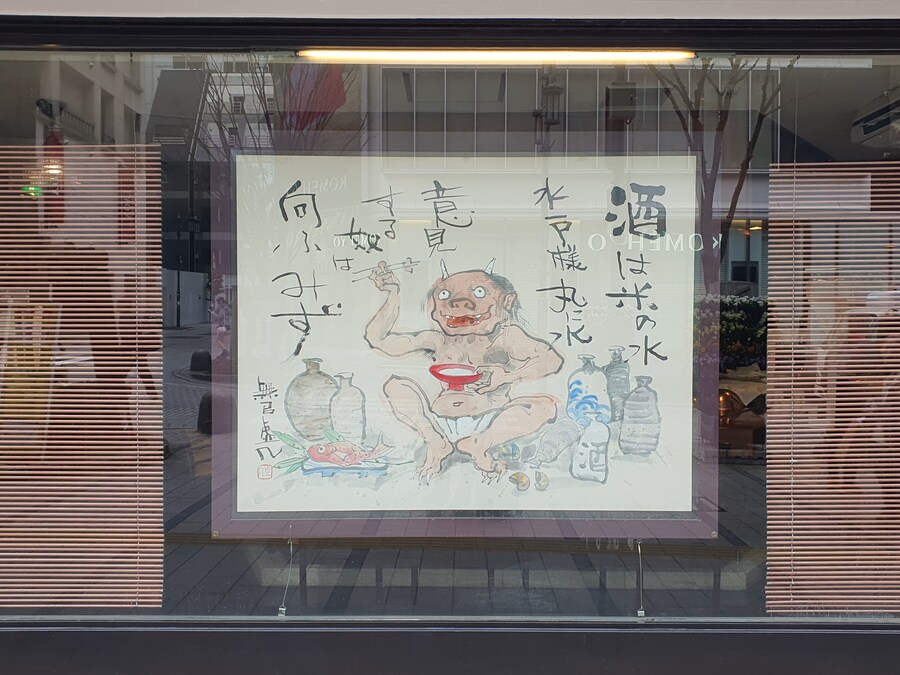 酒は米の水
水戸様丸に水
意見
する
奴は
向ふみず
酒
KOMEH